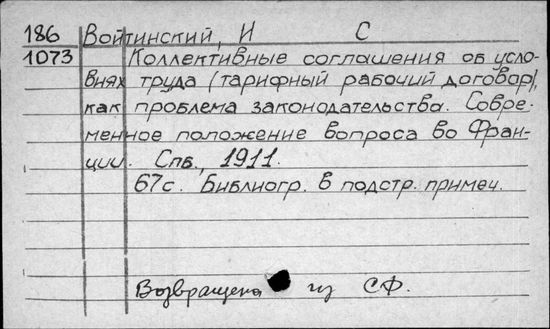 186 Войтинский, И С
1073 Коллективные соглашения об усло-
виях труда (тарифный рабочий договор),
как проблема законодательства. Совре-
менное положение вопроса во Фран-
ции. Спб., 1911.
67с. Библиогр. в подстр. примеч.
Возвращена из СФ.